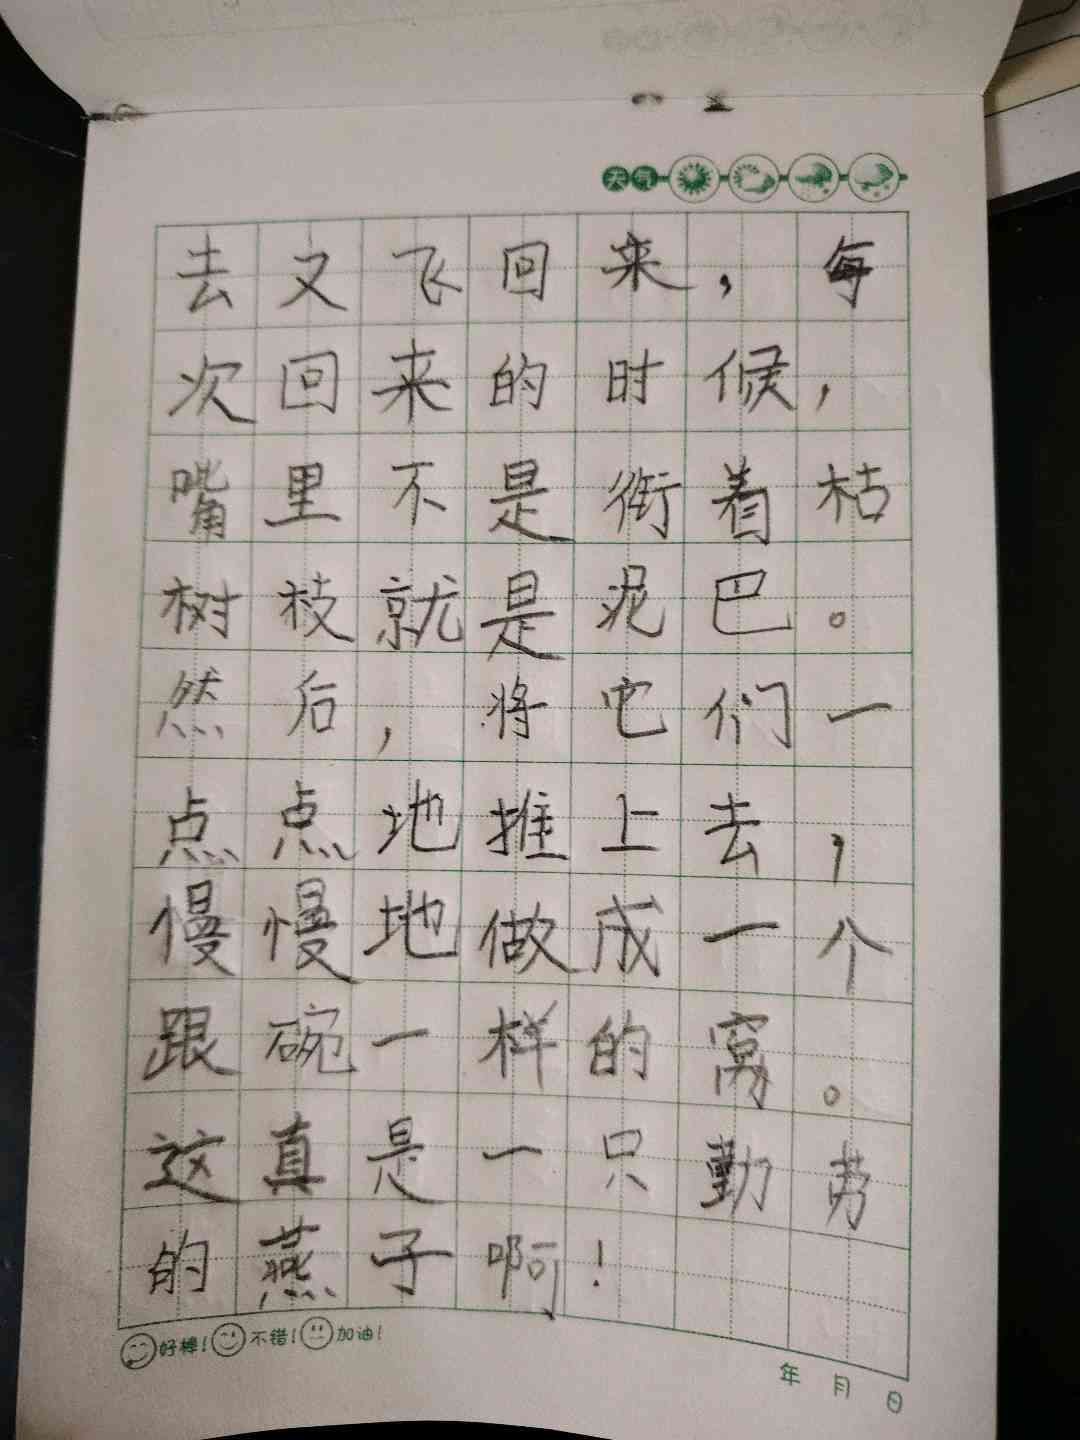 天气
去又飞回来，每
次回来的时候，
嘴里不是衔着枯
树枝就是泥巴。
然后，将它们一
点点地推上去，
慢慢地做成一个
跟碗一样的窝。
这真是一只勤劳
的燕子啊！
好棒！不错！加油！
年 月 日